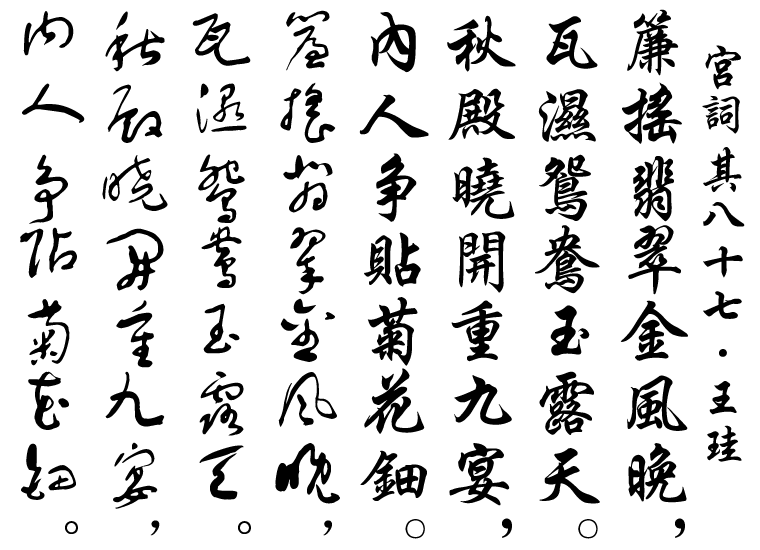 宮詞 其八十七．王珪
簾搖翡翠金風晚，
瓦濕鴛鴦玉露天。
秋殿曉開重九宴，
內人爭貼菊花鈿。
簾搖翡翠金風晚，
瓦濕鴛鴦玉露天。
秋殿曉開重九宴，
內人爭貼菊花鈿。